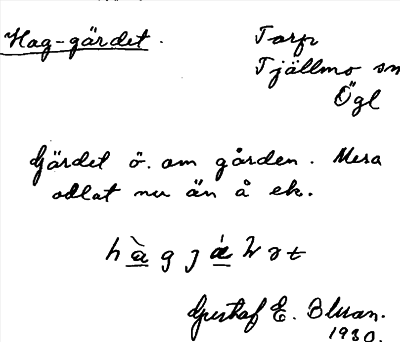 Hag-gärdet.
Torp
Tjällmo sn
Ögl
Gärdet ö. om gården. Mera
odlat nu än å ek.
Gustaf E. Blman.
1930.